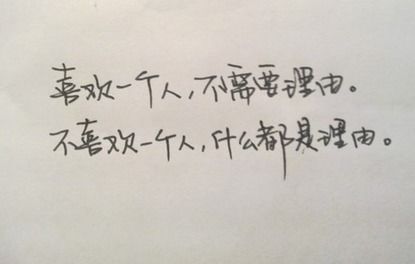 喜欢一个人,不需要理由。
不喜欢一个人,什么都是理由。